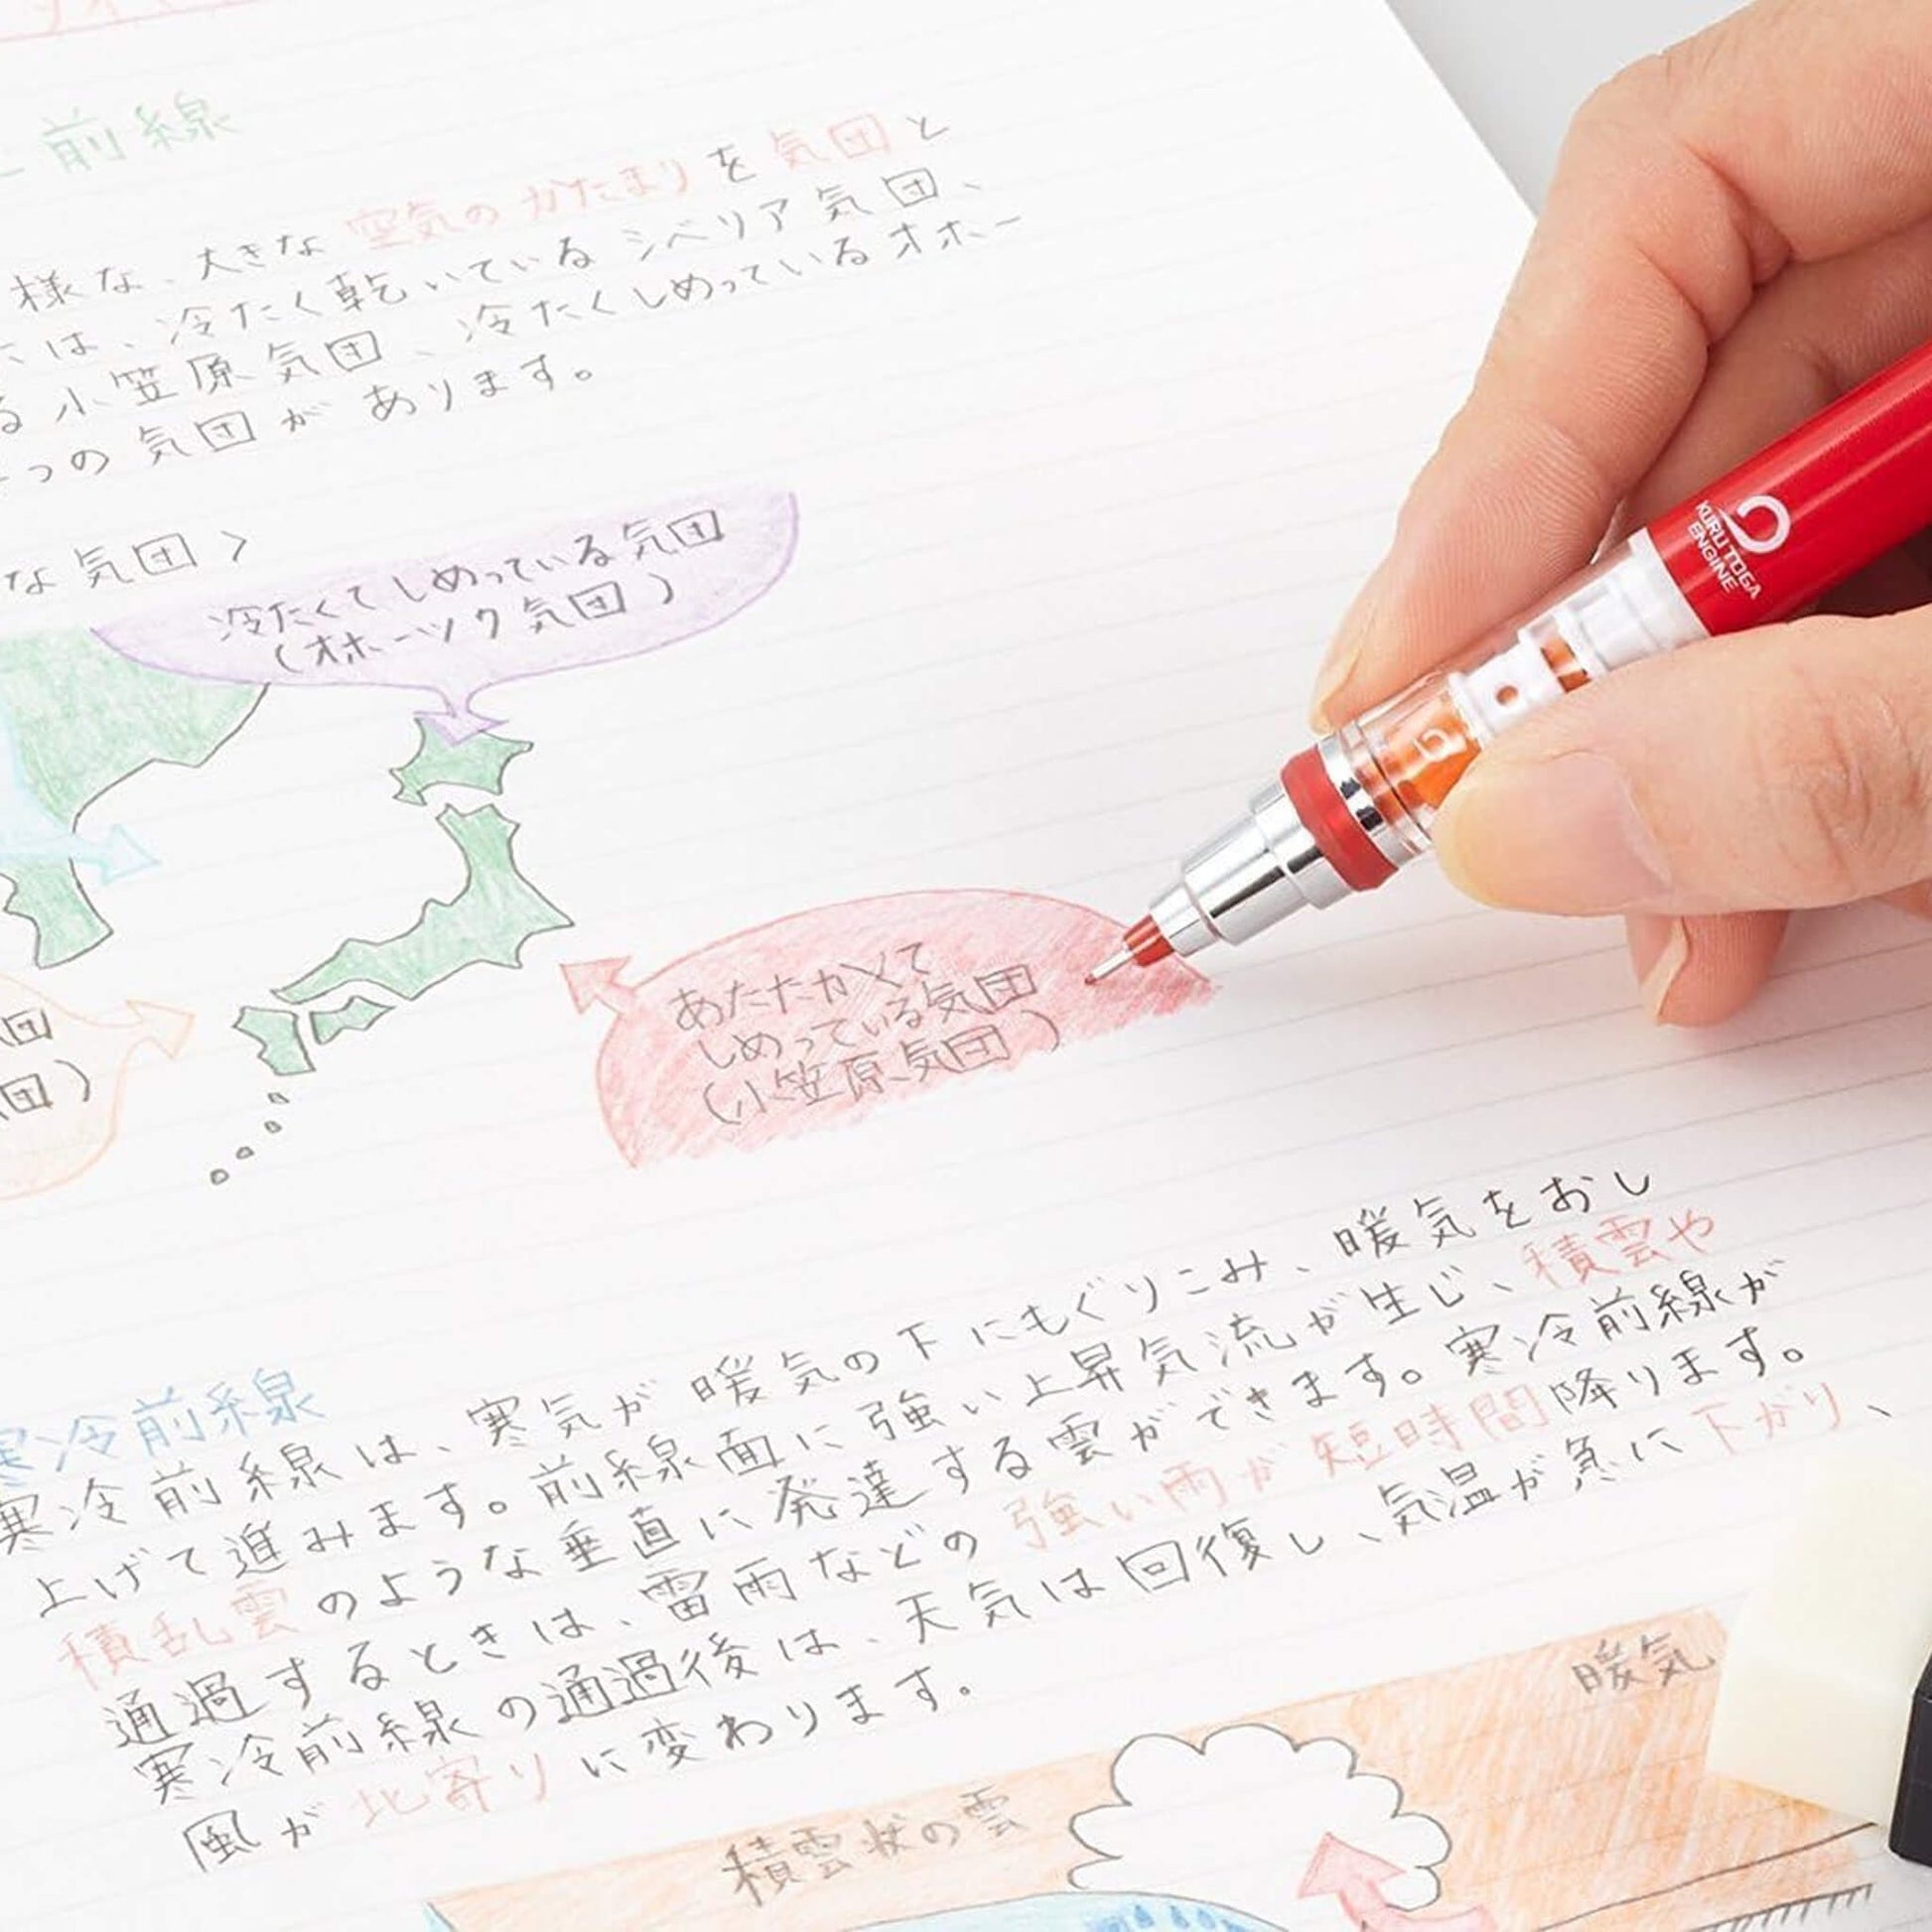 前線
様な、大きな 空気のかたまりを気団と
は、冷たく乾いているシベリア気団、
る小笠原気団、冷たくしめっているオホー
つの気団があります。
な気団>
冷たくてしめっている気団
(オホーツク気団)
団
団)
あたたかくて
しめっている気団
(小笠原気団)
KURU TOGA
ENGINE
寒冷前線
寒冷前線は、寒気が暖気の下にもぐりこみ、暖気をおし
上げて進みます。前線面に強い上昇気流が生じ、積雲や
積乱雲のような垂直に発達する雲ができます。寒冷前線が
通過するときは、雷雨などの強い雨が短時間降ります。
寒冷前線の通過後は、天気は回復し、気温が急に下がり、
風が北寄りに変わります。
暖気
積雲状の雲